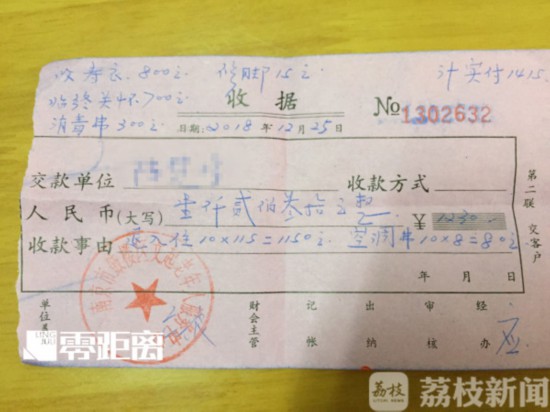 收寿衣800元 修脚15元 计实付1415
临终关怀700元 收 据 No 1302632
消毒串300元 日期:2018年12月25日
交款单位 收款方式
人民币(大写) 壹仟贰佰叁拾元整 ¥ 1230
收款事由 入住10×115=1150元 空调串10×8=80元
年 月 日
第二联 交客户
单位盖 财会主管 记帐 出纳 审核 经办
LING JULI
零距离
荔枝
荔枝新闻